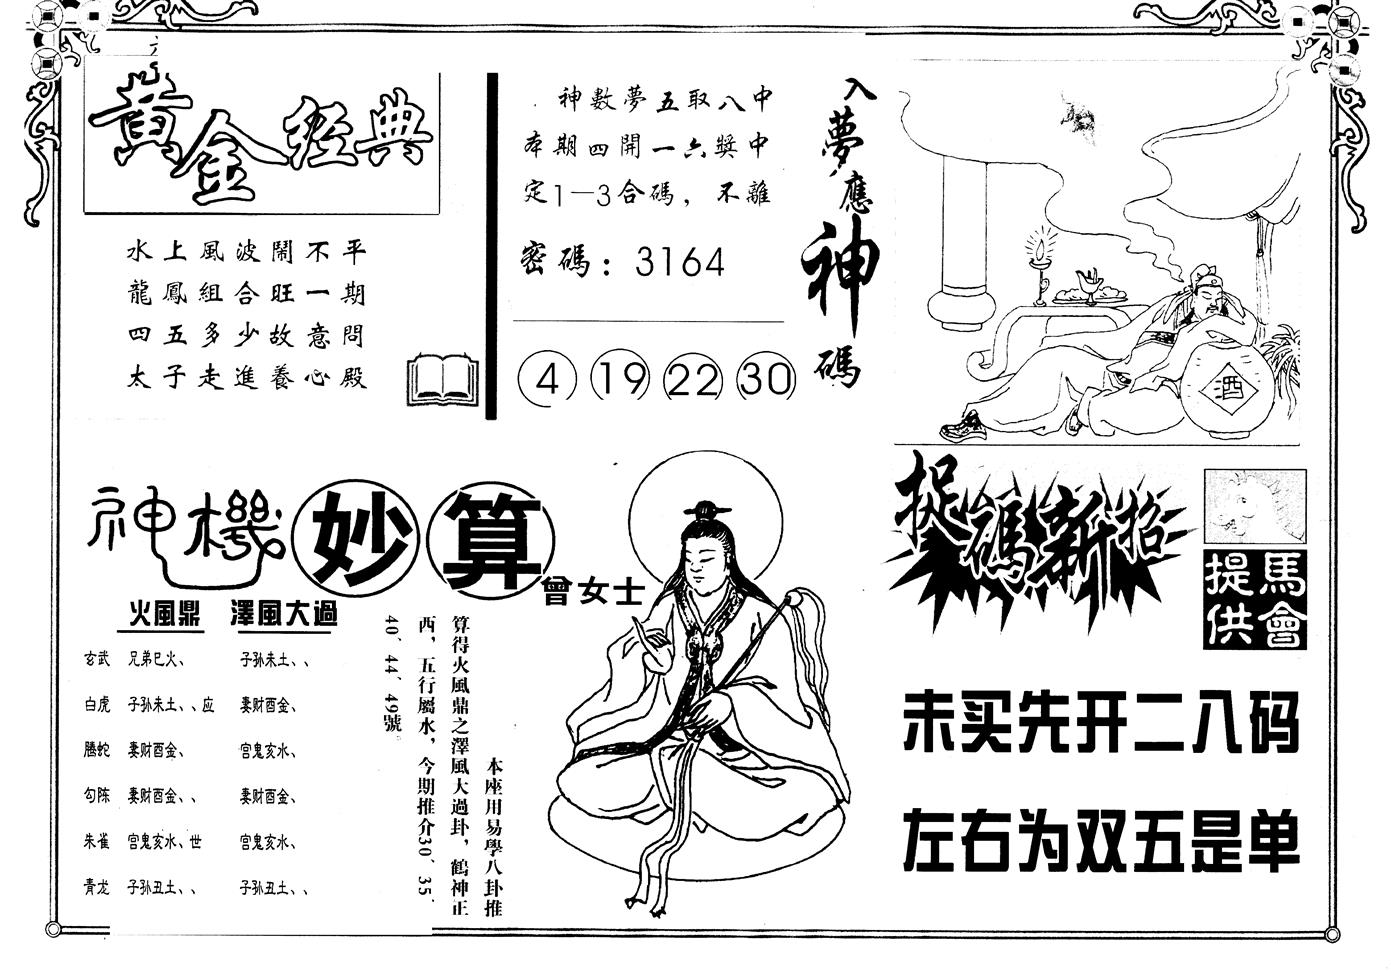 黃金經典
水上風波鬧不平
龍鳳組合旺一期
四五多少故意問
太子走進養心殿
神數夢五取八中
本期四開一六獎中
定1—3合碼，不離
密碼：3164
4 19 22 30
入夢應神碼
酒
神機妙算
曾女士
火風鼎 澤風大過
玄武 兄弟巳火、 子孙未土、、
白虎 子孙未土、、应 妻财酉金、
螣蛇 妻财酉金、 官鬼亥水、
勾陈 妻财酉金、、 妻财酉金、
朱雀 官鬼亥水、世 官鬼亥水、
青龙 子孙丑土、、 子孙丑土、、
本座用易學八卦推
算得火風鼎之澤風大過卦，鶴神正
西，五行屬水，今期推介30、35、
40、44、49號
捉碼新招
馬會提供
未买先开二八码
左右为双五是单